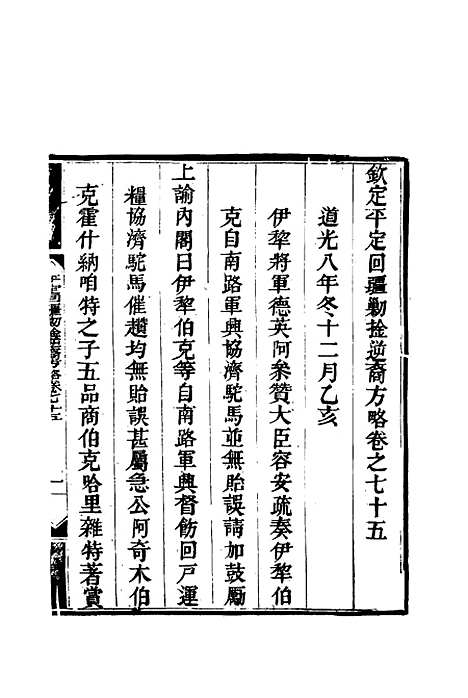 欽定平定回疆勦捦逆裔方略卷之七十五
道光八年冬十二月乙亥
伊犂將軍德英阿叅贊大臣容安疏奏伊犂伯
克自南路軍興協濟駝馬並無貽誤請加鼓勵
上諭內閣曰伊犂伯克等自南路軍興督飭回戸運
糧協濟駝馬催趲均無貽誤甚屬急公阿奇木伯
克霍什納咱特之子五品商伯克哈里雜特著賞